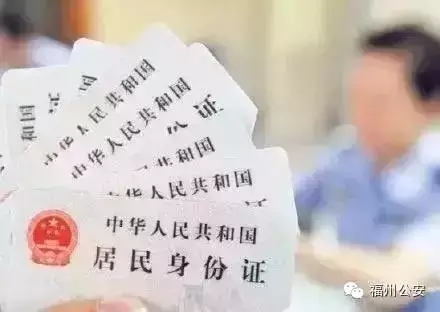 中华人民共和国
份证
中华人民共和国
中华人民共和国
中华人民共和国
居民身份证
福州公安